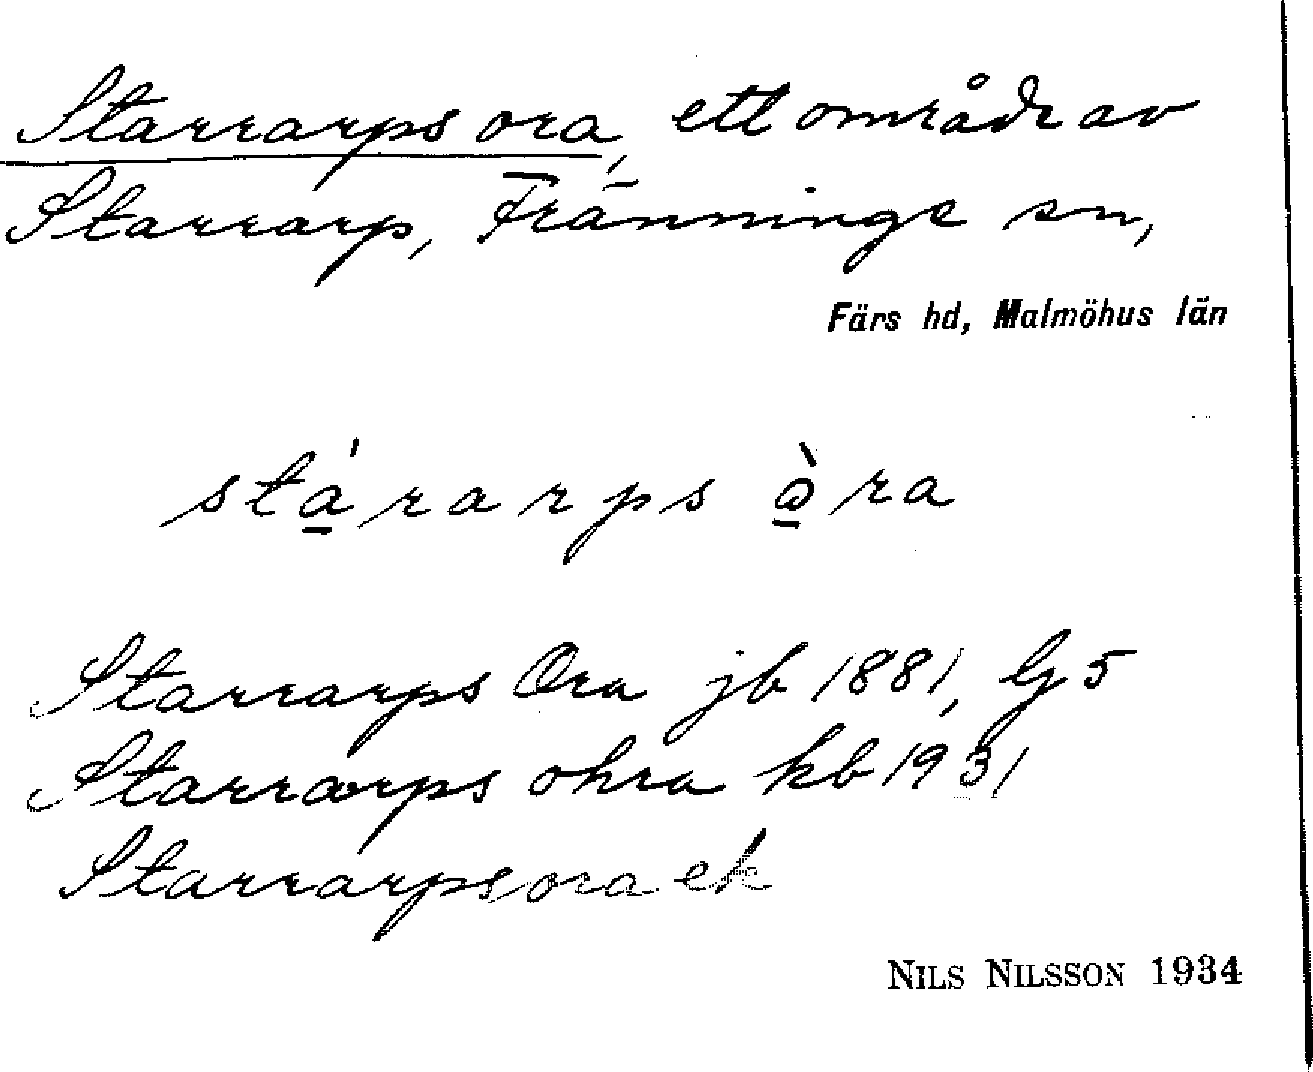 Starrarps ora, ett område av
Starrarp, Fränninge sn,
Färs hd, Malmöhus län
stá̱rarps ò̱ra
Starrarps Ora jb 1881, lj 5
Starrarps ohra kb 1931
Starrarpsora ek
NILS NILSSON 1934